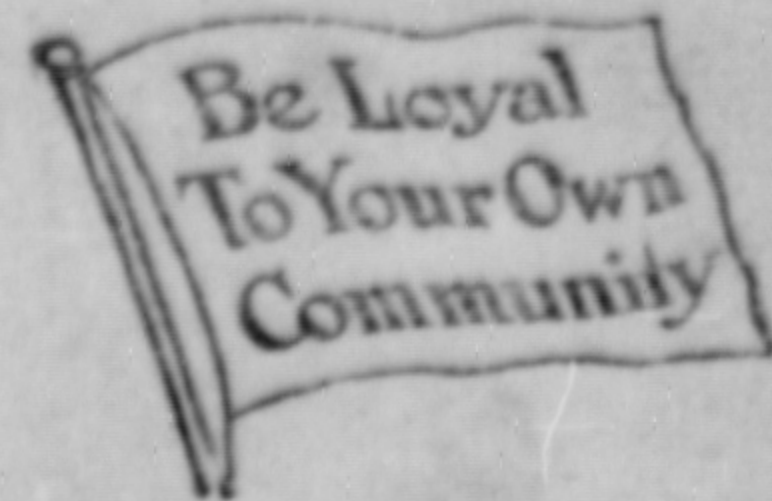 Be Loyal
To Your Own
Community